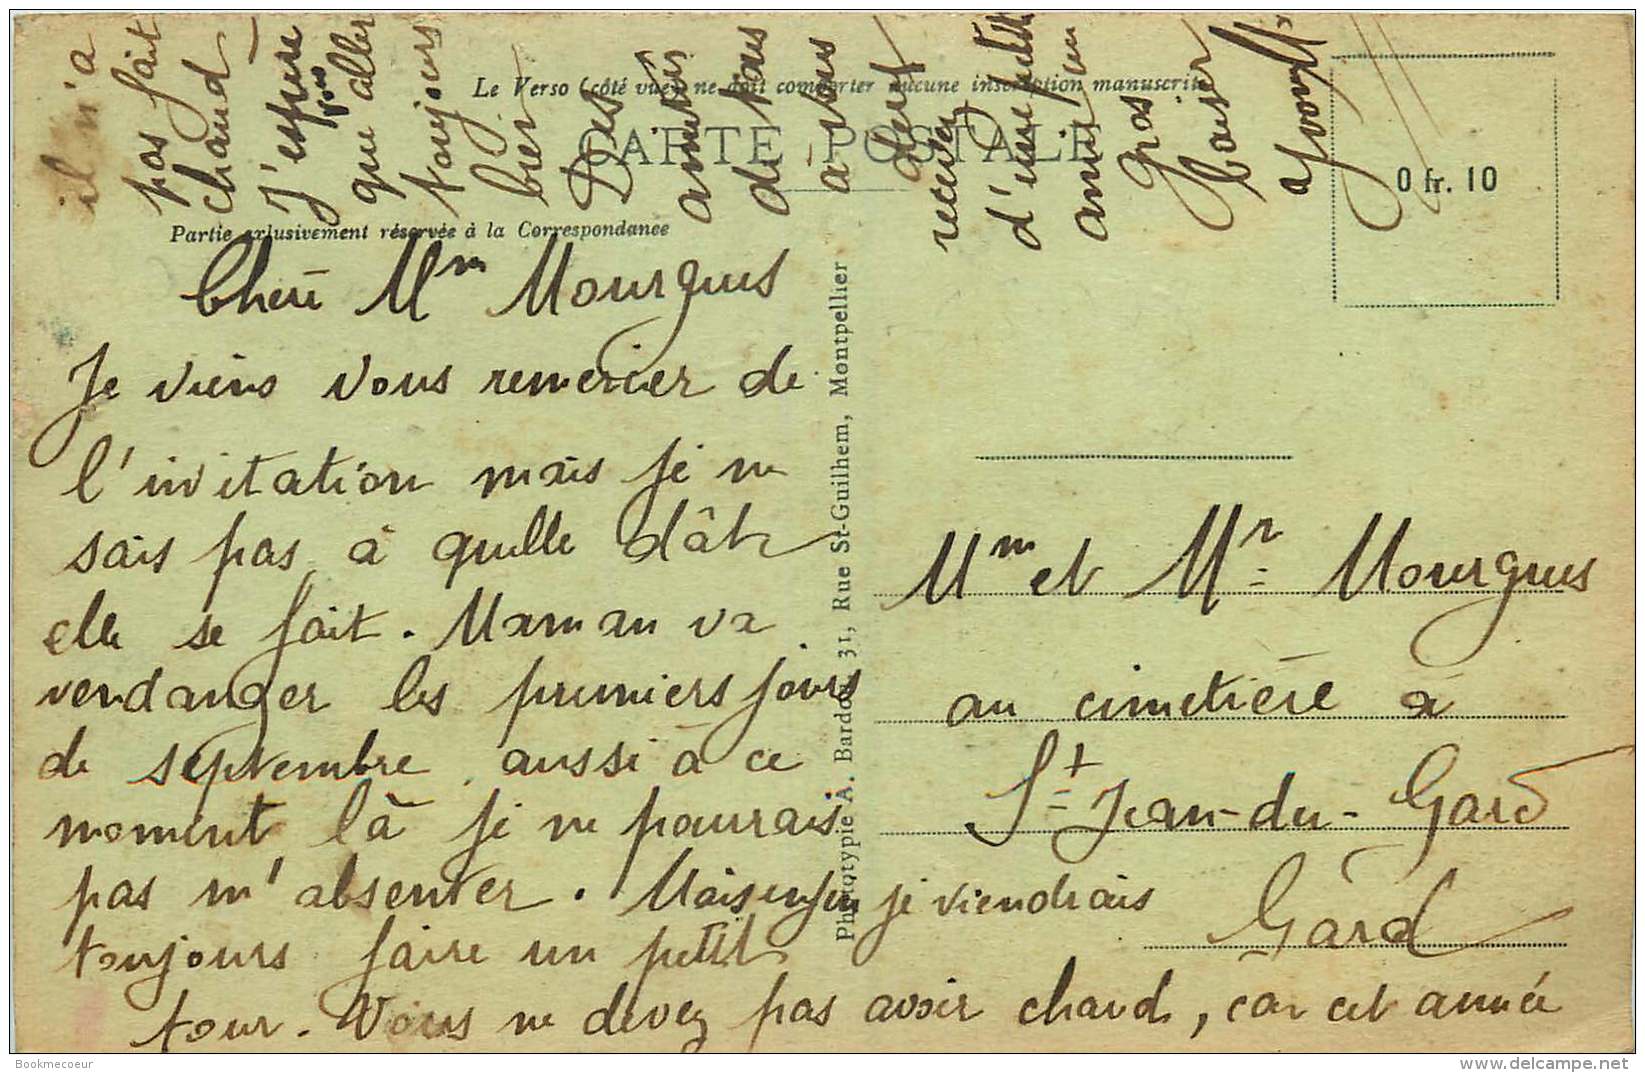 Le Verso (côté vue) ne doit comporter aucune inscription manuscrite
CARTE POSTALE
0 fr. 10
Partie exlusivement réservée à la Correspondance
Chère Mm Mourgues
Je viens vous remercier de
l'invitation mais je ne
sais pas à quelle dâte
elle se fait. Maman va
vendanger les premiers jours
de septembre aussi à ce
moment là je ne pourrais
pas m'absenter. Mais enfin je viendrais
toujours faire un petit
tour. Vous ne devez pas avoir chaud, car cet année
il n'a
pas fait
chaud
J'espère
vous
que aller
toujours
bien
Des
amitiés
de tous
a vous
deux
recevez
d'une petite
amie un
gros
baiser
Yvonne
Phototypie A. Bardou, 31, Rue St-Guilhem, Montpellier
Mm et Mr Mourgues
au cimetière à
St Jean-du-Gard
Gard
Bookmecoeur
www.delcampe.net